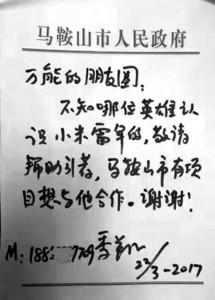 马鞍山市人民政府
万能的朋友圈：
不知哪位英雄认
识小米雷军的，敬请
帮助引荐，马鞍山市有项
目想与他合作。谢谢！
M：188 7709 季翔
22/3-2017